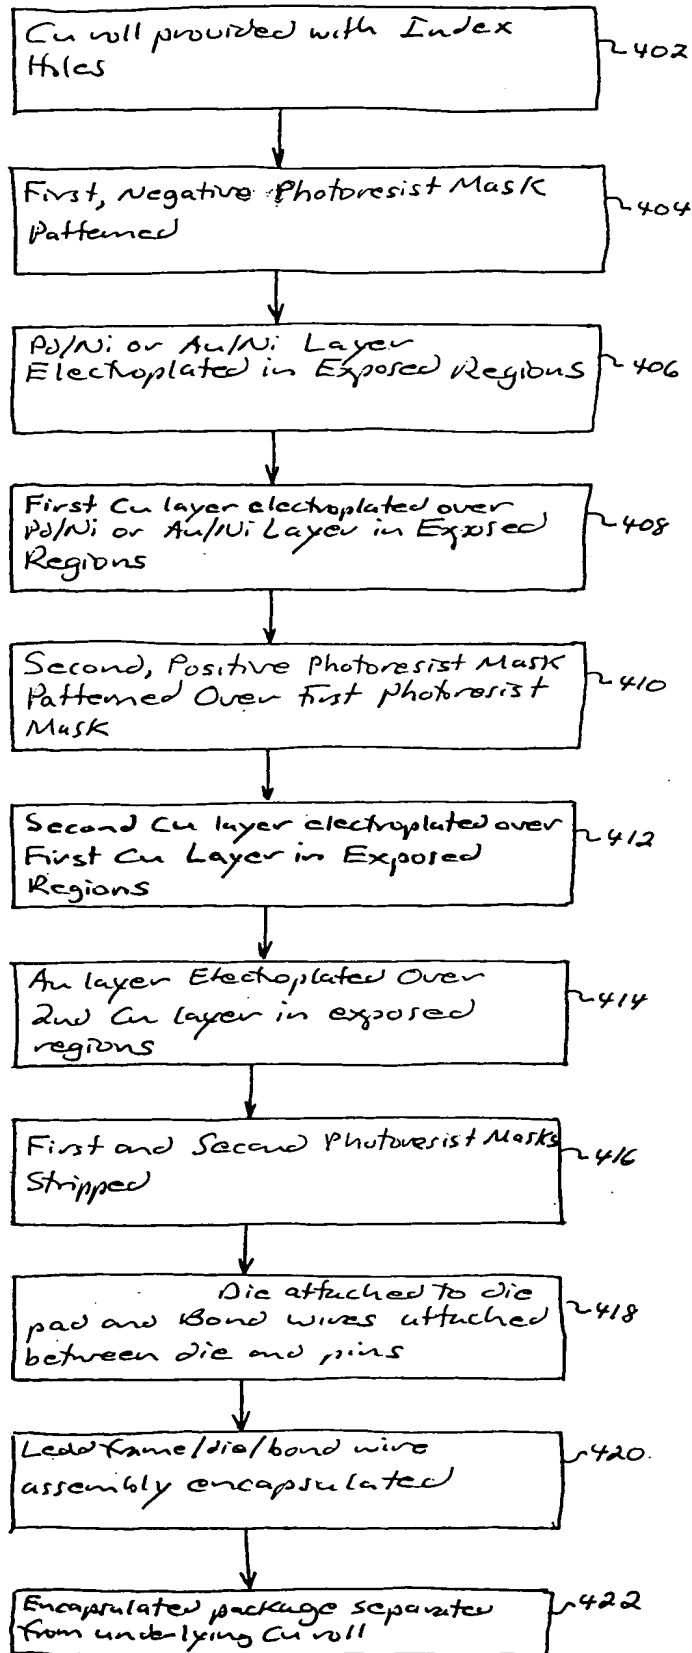 Cu roll provided with Index
Holes
402
First, Negative Photoresist Mask
Patterned
404
Pd/Ni or Au/Ni Layer
Electroplated in Exposed Regions
406
First Cu layer electroplated over
Pd/Ni or Au/Ni Layer in Exposed
Regions
408
Second, Positive Photoresist Mask
Patterned Over First Photoresist
Mask
410
Second Cu layer electroplated over
First Cu Layer in Exposed
Regions
412
Au layer Electroplated Over
2nd Cu layer in exposed
regions
414
First and Second Photoresist Masks
Stripped
416
Die attached to die
pad and Bond wires attached
between die and pins
418
Lead frame/die/bond wire
assembly encapsulated
420
Encapsulated package separated
from underlying Cu roll
422